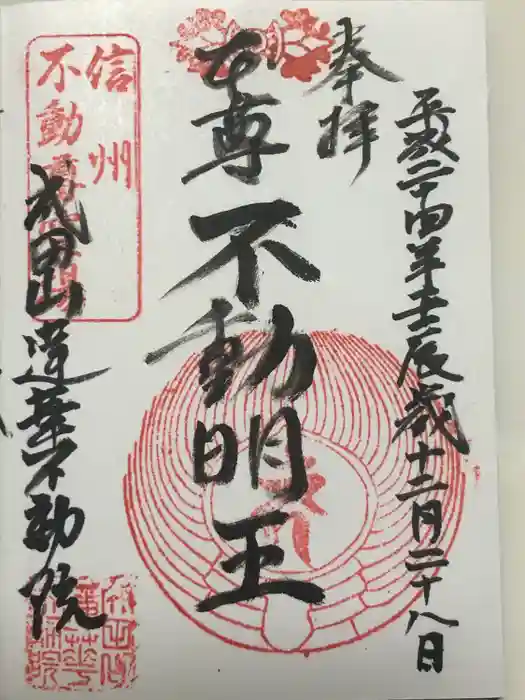 奉拝
平成二十四年壬辰歳十二月二十八日
本尊不動明王
成田山蓮華不動院
信州
不動尊霊場